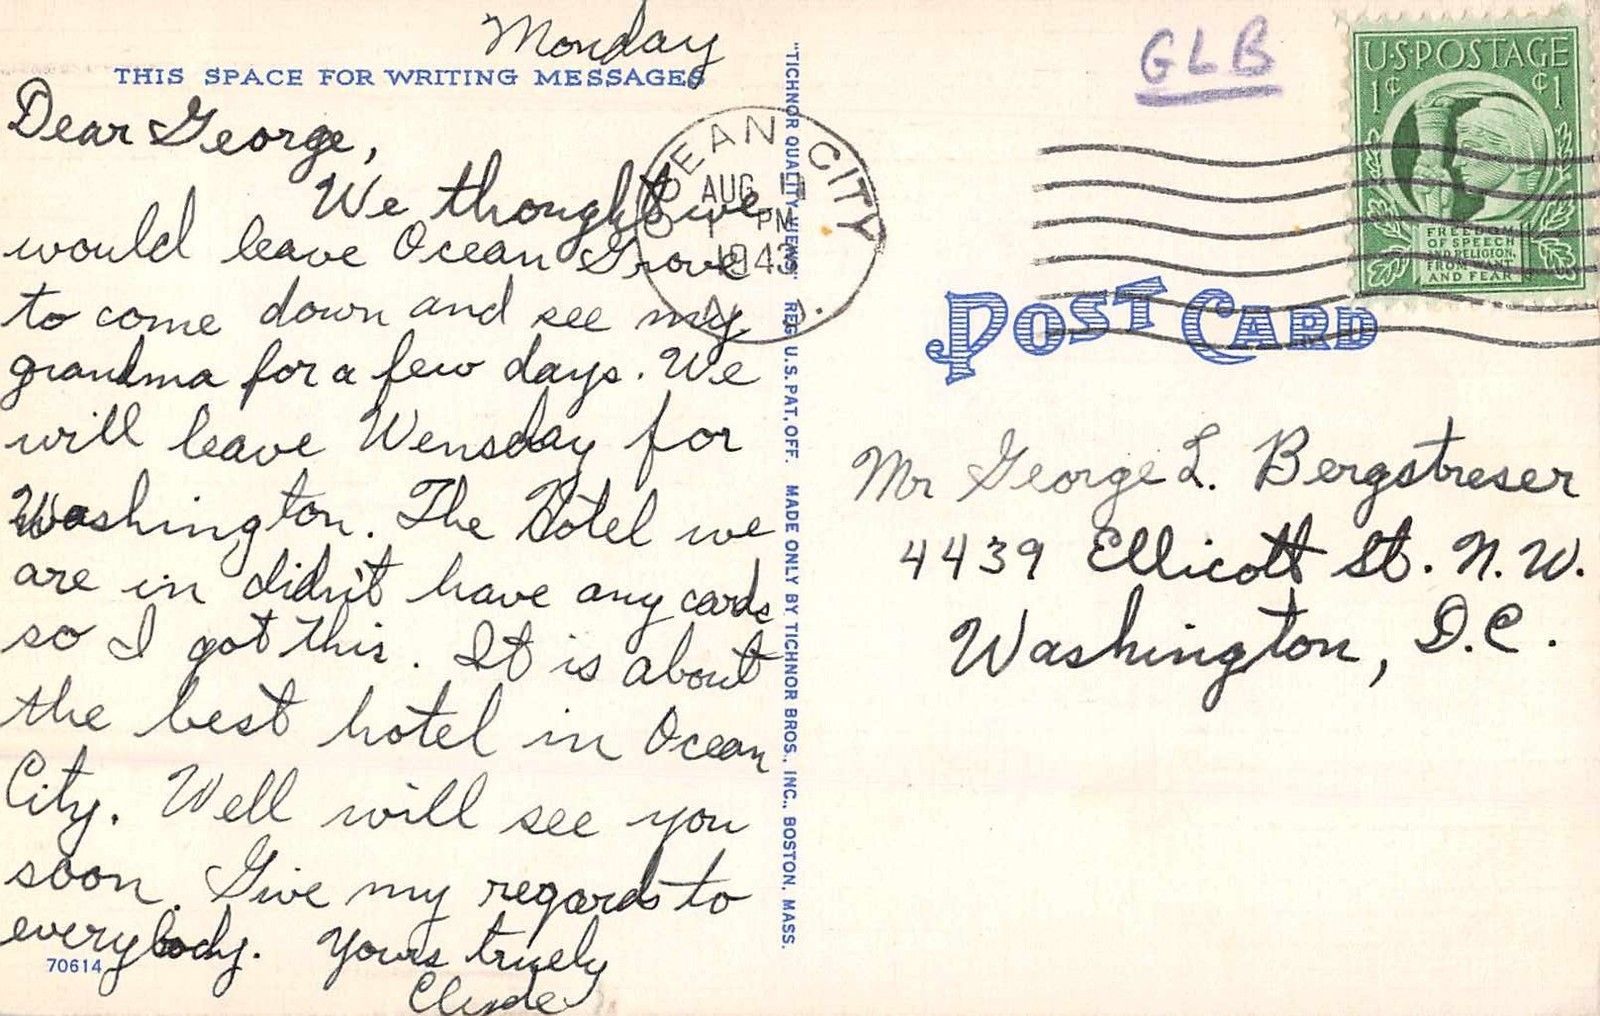 Monday
THIS SPACE FOR WRITING MESSAGES
Dear George,
We thought we
would leave Ocean Grove
to come down and see my
grandma for a few days. We
will leave Wensday for
Washington. The Hotel we
are in didn't have any cards
so I got this. It is about
the best hotel in Ocean
City. Well will see you
soon. Give my regards to
everybody. Yours truely
Clyde
70614
"TICHNOR QUALITY VIEWS," REG. U.S. PAT. OFF. MADE ONLY BY TICHNOR BROS., INC., BOSTON, MASS.
OCEAN CITY
AUG
PM
1943
GLB
U.S. POSTAGE
1¢ ¢1
FREEDOM
OF SPEECH
AND RELIGION,
FROM WANT
AND FEAR
POST CARD
Mr George L. Bergstreser
4439 Ellicott St. N.W.
Washington, D.C.